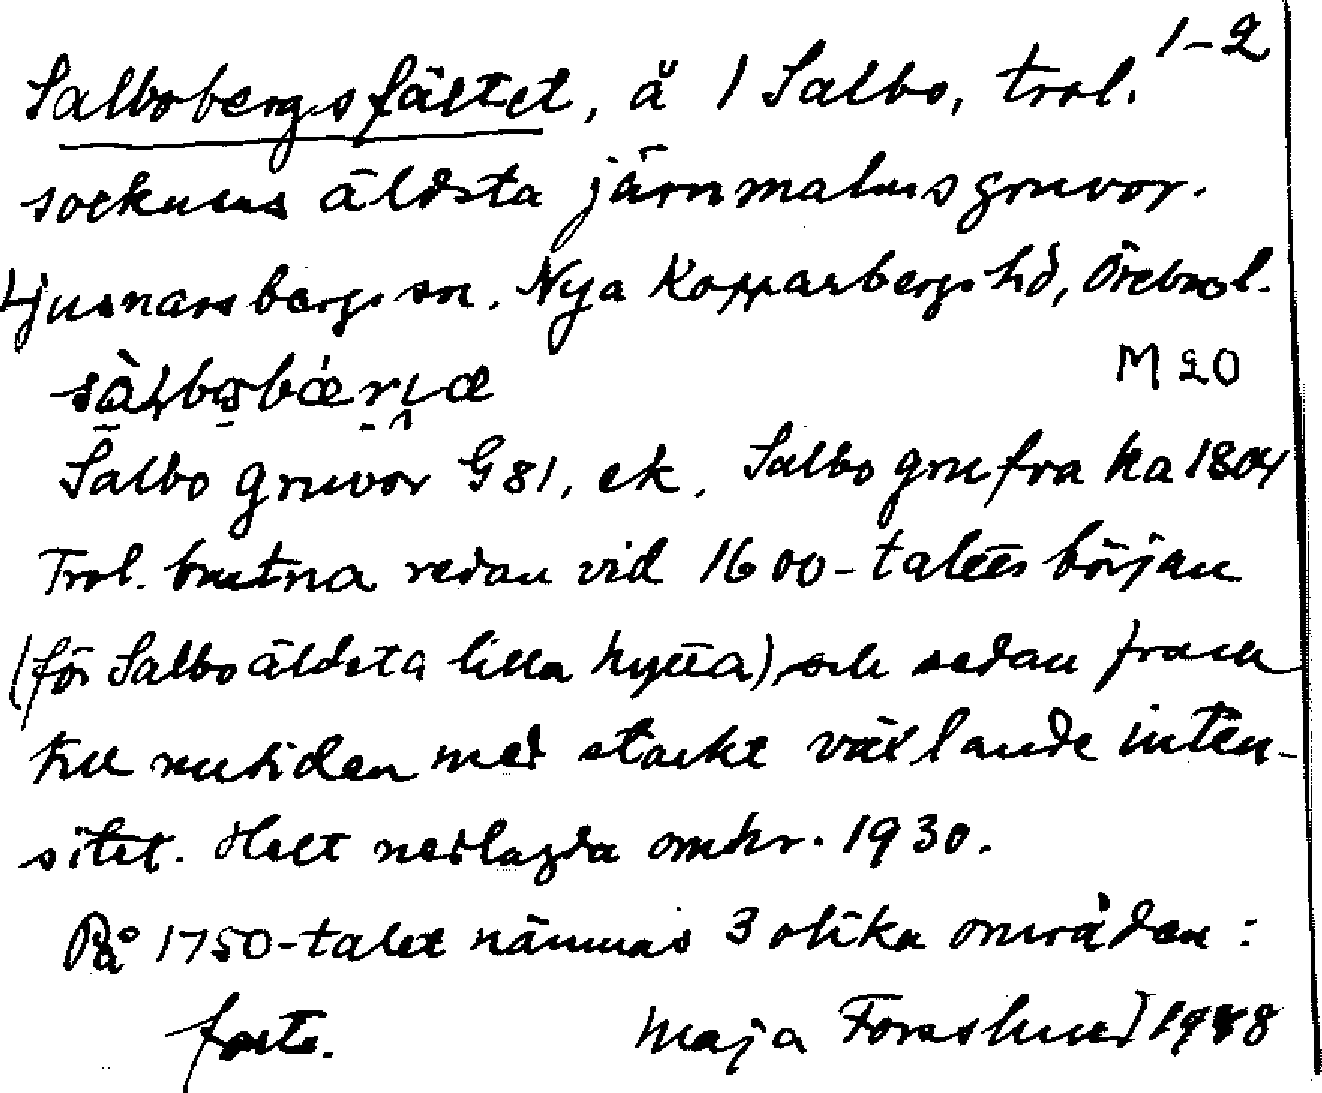 1-2
Salbobergsfältet, å 1 Salbo, trol.
socknens äldsta järnmalmsgruvor.
Ljusnarsbergs sn. Nya Kopparbergs hd, Örebro l.
M 20
Salbo gruvor G 81, ek. Salbo grufra ka 1804
Trol. brutna redan vid 1600-talets början
(för Salbo äldsta lilla hytta), och sedan fram
till nutiden med starkt växlande inten-
sitet. Helt nedlagda omkr. 1930.
På 1750-talet nämnas 3 olika områden:
forts. Maja Forsslund